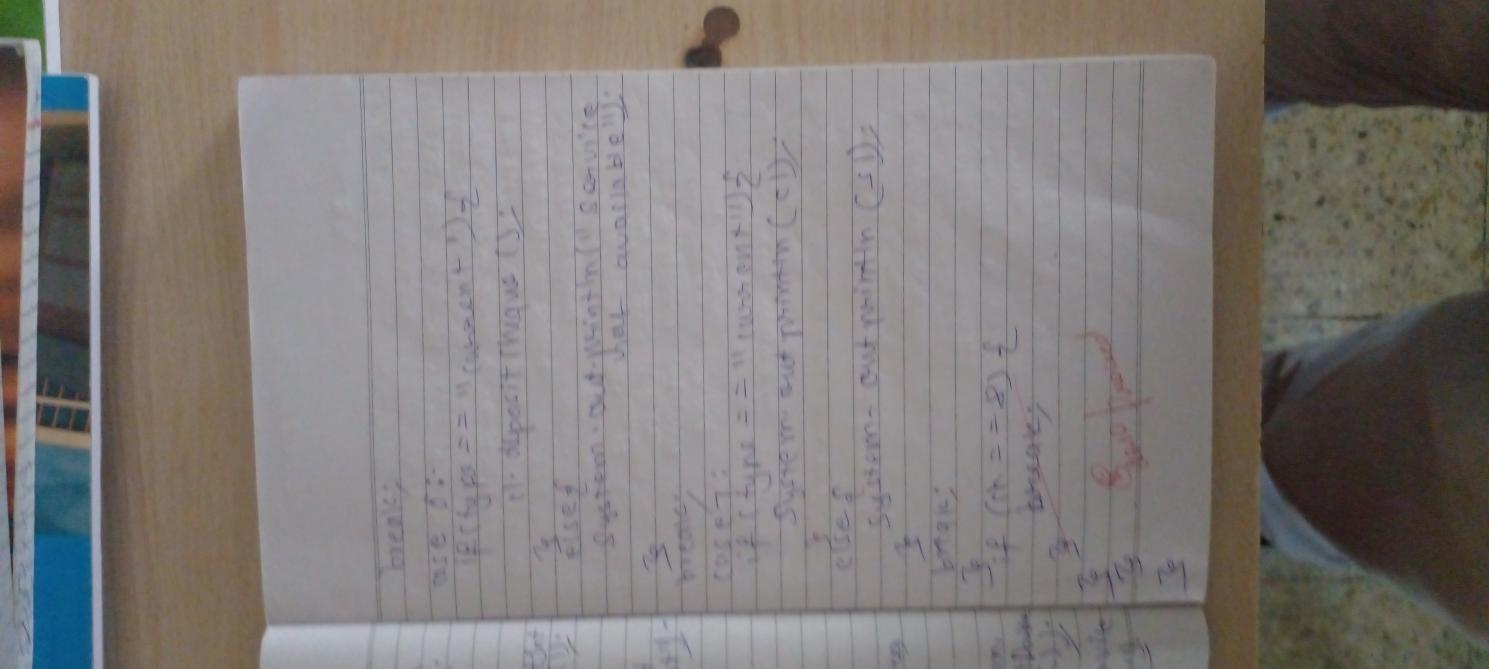 break;
case 6:
if(type == "current"){
c1. depositcheque ();
}
else{
System.out.println("service
not available");
}
break;
case 7:
if (type == "current"){
System.out println (c1);
}
else{
System. out println (s1);
}
break;
}
if (ch == 8) {
break;
}
}
}
}